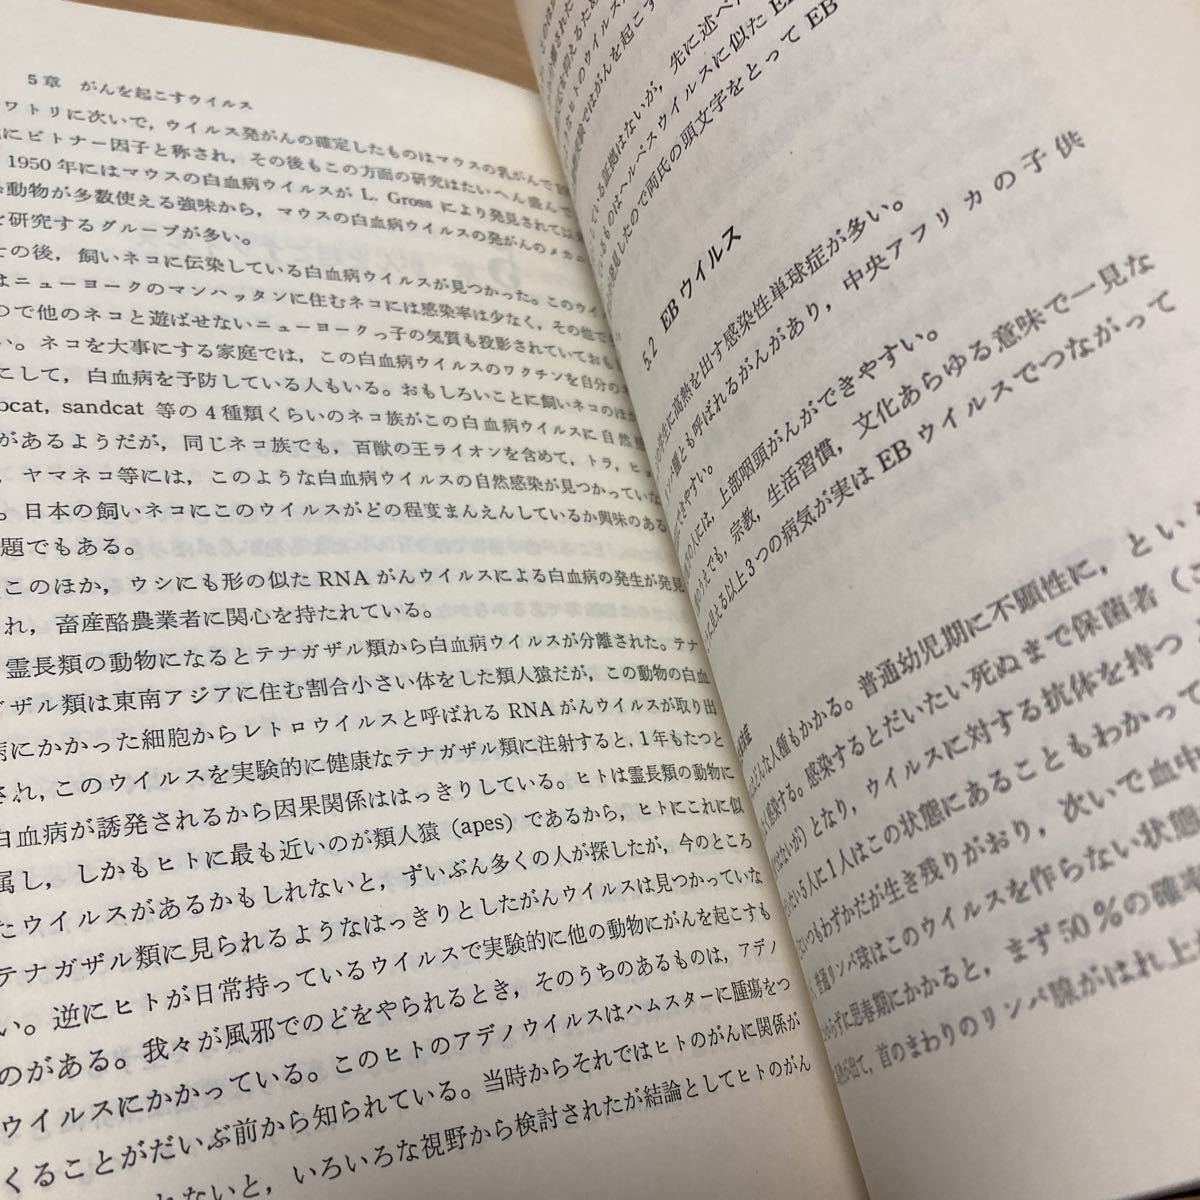 5章 がんを起こすウイルス
ワトリに次いで，ウイルス発がんの確定したものはマウスの乳がんで
にビトナー因子と称され，その後もこの方面の研究はたいへん盛んで
1950年にはマウスの白血病ウイルスが L. Gross により発見されて以
動物が多数使える強味から，マウスの白血病ウイルスの発がんのメカニ
を研究するグループが多い。
その後，飼いネコに伝染している白血病ウイルスが見つかった。このウイ
はニューヨークのマンハッタンに住むネコには感染率は少なく，その他で
ので他のネコと遊ばせないニューヨークっ子の気質も投影されていておも
い。ネコを大事にする家庭では，この白血病ウイルスのワクチンを自分の
にして，白血病を予防している人もいる。おもしろいことに飼いネコのほか
bcat, sandcat 等の4種類くらいのネコ族がこの白血病ウイルスに自然感
があるようだが，同じネコ族でも，百獣の王ライオンを含めて，トラ，ヒョ
，ヤマネコ等には，このような白血病ウイルスの自然感染が見つかっていな
。日本の飼いネコにこのウイルスがどの程度まんえんしているか興味のある
題でもある。
このほか，ウシにも形の似た RNA がんウイルスによる白血病の発生が発見
れ，畜産酪農業者に関心を持たれている。
霊長類の動物になるとテナガザル類から白血病ウイルスが分離された。テナ
ザル類は東南アジアに住む割合小さい体をした類人猿だが，この動物の白血
病にかかった細胞からレトロウイルスと呼ばれる RNA がんウイルスが取り出
され，このウイルスを実験的に健康なテナガザル類に注射すると，1年もたつと
白血病が誘発されるから因果関係ははっきりしている。ヒトは霊長類の動物に
属し，しかもヒトに最も近いのが類人猿（apes）であるから，ヒトにこれに似
たウイルスがあるかもしれないと，ずいぶん多くの人が探したが，今のところ
テナガザル類に見られるようなはっきりとしたがんウイルスは見つかっていな
い。逆にヒトが日常持っているウイルスで実験的に他の動物にがんを起こすも
のがある。我々が風邪でのどをやられるとき，そのうちのあるものは，アデノ
ウイルスにかかっている。このヒトのアデノウイルスはハムスターに腫瘍をつ
くることがだいぶ前から知られている。当時からそれではヒトのがんに関係が
ないと，いろいろな視野から検討されたが結論としてヒトのがん
ヒトのウイルス
験ではがんを起こす
ている証拠はないが，先に述べた
ているものはヘルペスウイルスに似た
したので両氏の頭文字をとって EB
5.2 EB ウイルス
学生に高熱を出す感染性単球症が多い。
腫とも呼ばれるがんがあり，中央アフリカの子供
きやすい。
の人には，上部咽頭がんができやすい。
うえでも，宗教，生活習慣，文化あらゆる意味で一見な
に見える以上3つの病気が実は EB ウイルスでつながって
どんな人種もかかる。普通幼児期に不顕性に，という
感染する。感染するとだいたい死ぬまで保菌者（こ
ではないが）となり，ウイルスに対する抗体を持つ
たい5人に1人はこの状態にあることもわかって
いつもわずかだが生き残りがおり，次いで血中
普通リンパ球はこのウイルスを作らない状態
からずに思春期にかかると，まず50％の確率
が出て，首のまわりのリンパ腺がはれ上が